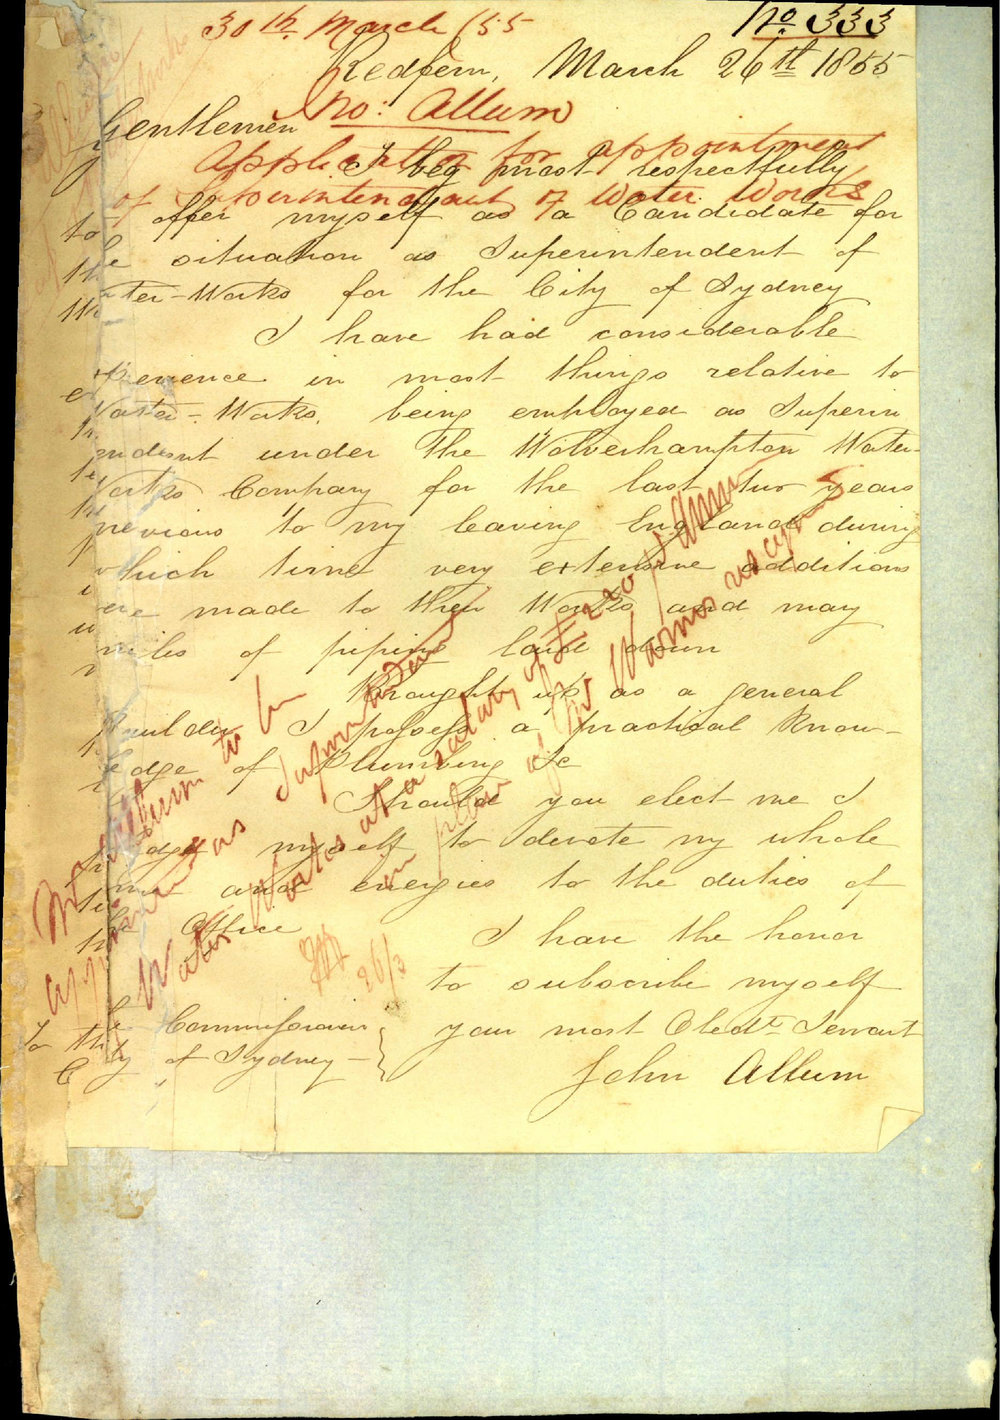 30th March /55
No. 333
Redfern, March 26th 1855
Gentlemen
Jno: Allum
Application for appointment
of Superintendent of Water Works
I beg most respectfully
to offer myself as a Candidate for
the situation as Superintendent of
Water-Works for the City of Sydney
I have had considerable
experience in most things relative to
Water-Works, being employed as Superin
tendent under the Wolverhampton Water-
Works Company for the last two years
previous to my leaving England during
which time very extensive additions
were made to their Works and many
miles of piping laid down
Brought up as a general
Builder I possess a practical Know-
ledge of Plumbing &c
Should you elect me I
pledge myself to devote my whole
time and energies to the duties of
the Office
I have the honor
to subscribe myself
your most Obedt. Servant
John Allum
To the Commissioners
City of Sydney
Mr Allum to be
appointed as Superintendent
Water Works at a salary of £250 p Annum
in place of Mr Warner resigned
26/3